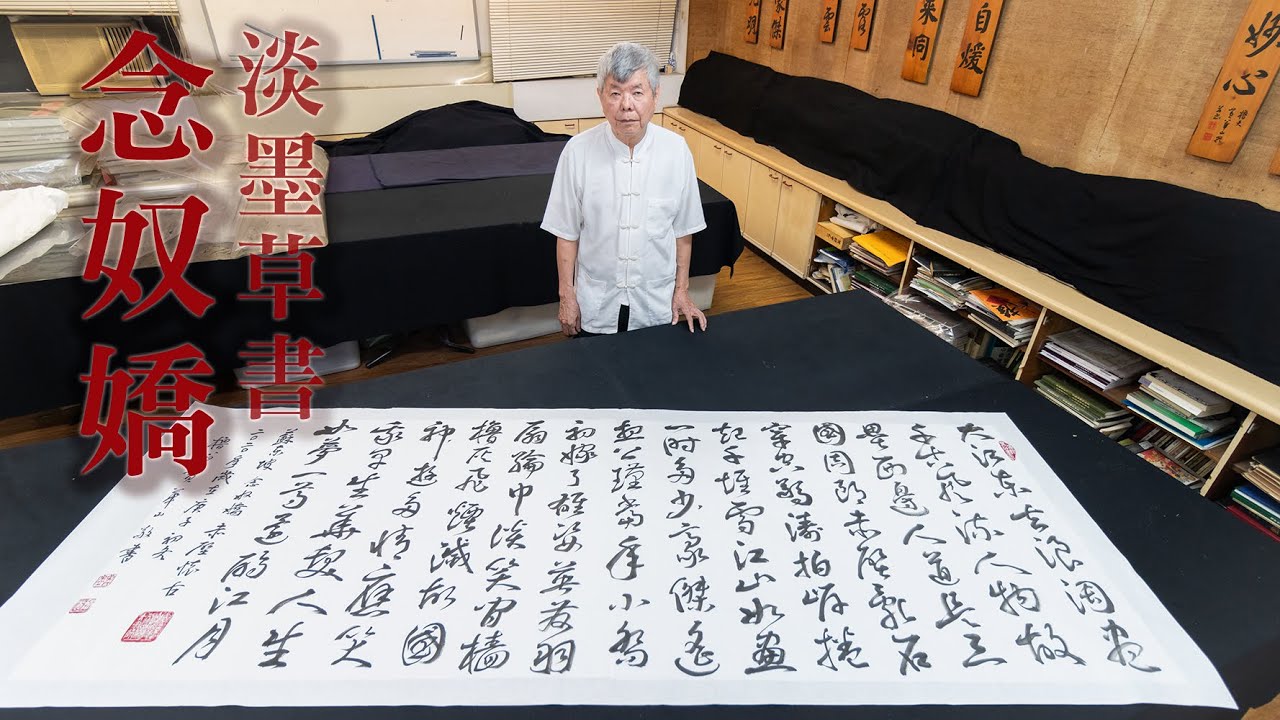 淡墨草書
念奴嬌
妙心
自煖
來同
大江東去浪淘盡
千古風流人物故
壘西邊人道是三
國周郎赤壁亂石
穿空驚濤拍岸捲
起千堆雪江山如畫
一時多少豪傑遙
想公瑾當年小喬
初嫁了雄姿英發羽
扇綸巾談笑間檣
櫓灰飛煙滅故國
神遊多情應笑
我早生華髮人生
如夢一尊還酹江月
蘇東坡念奴嬌赤壁懷古
歲在庚子初冬
書